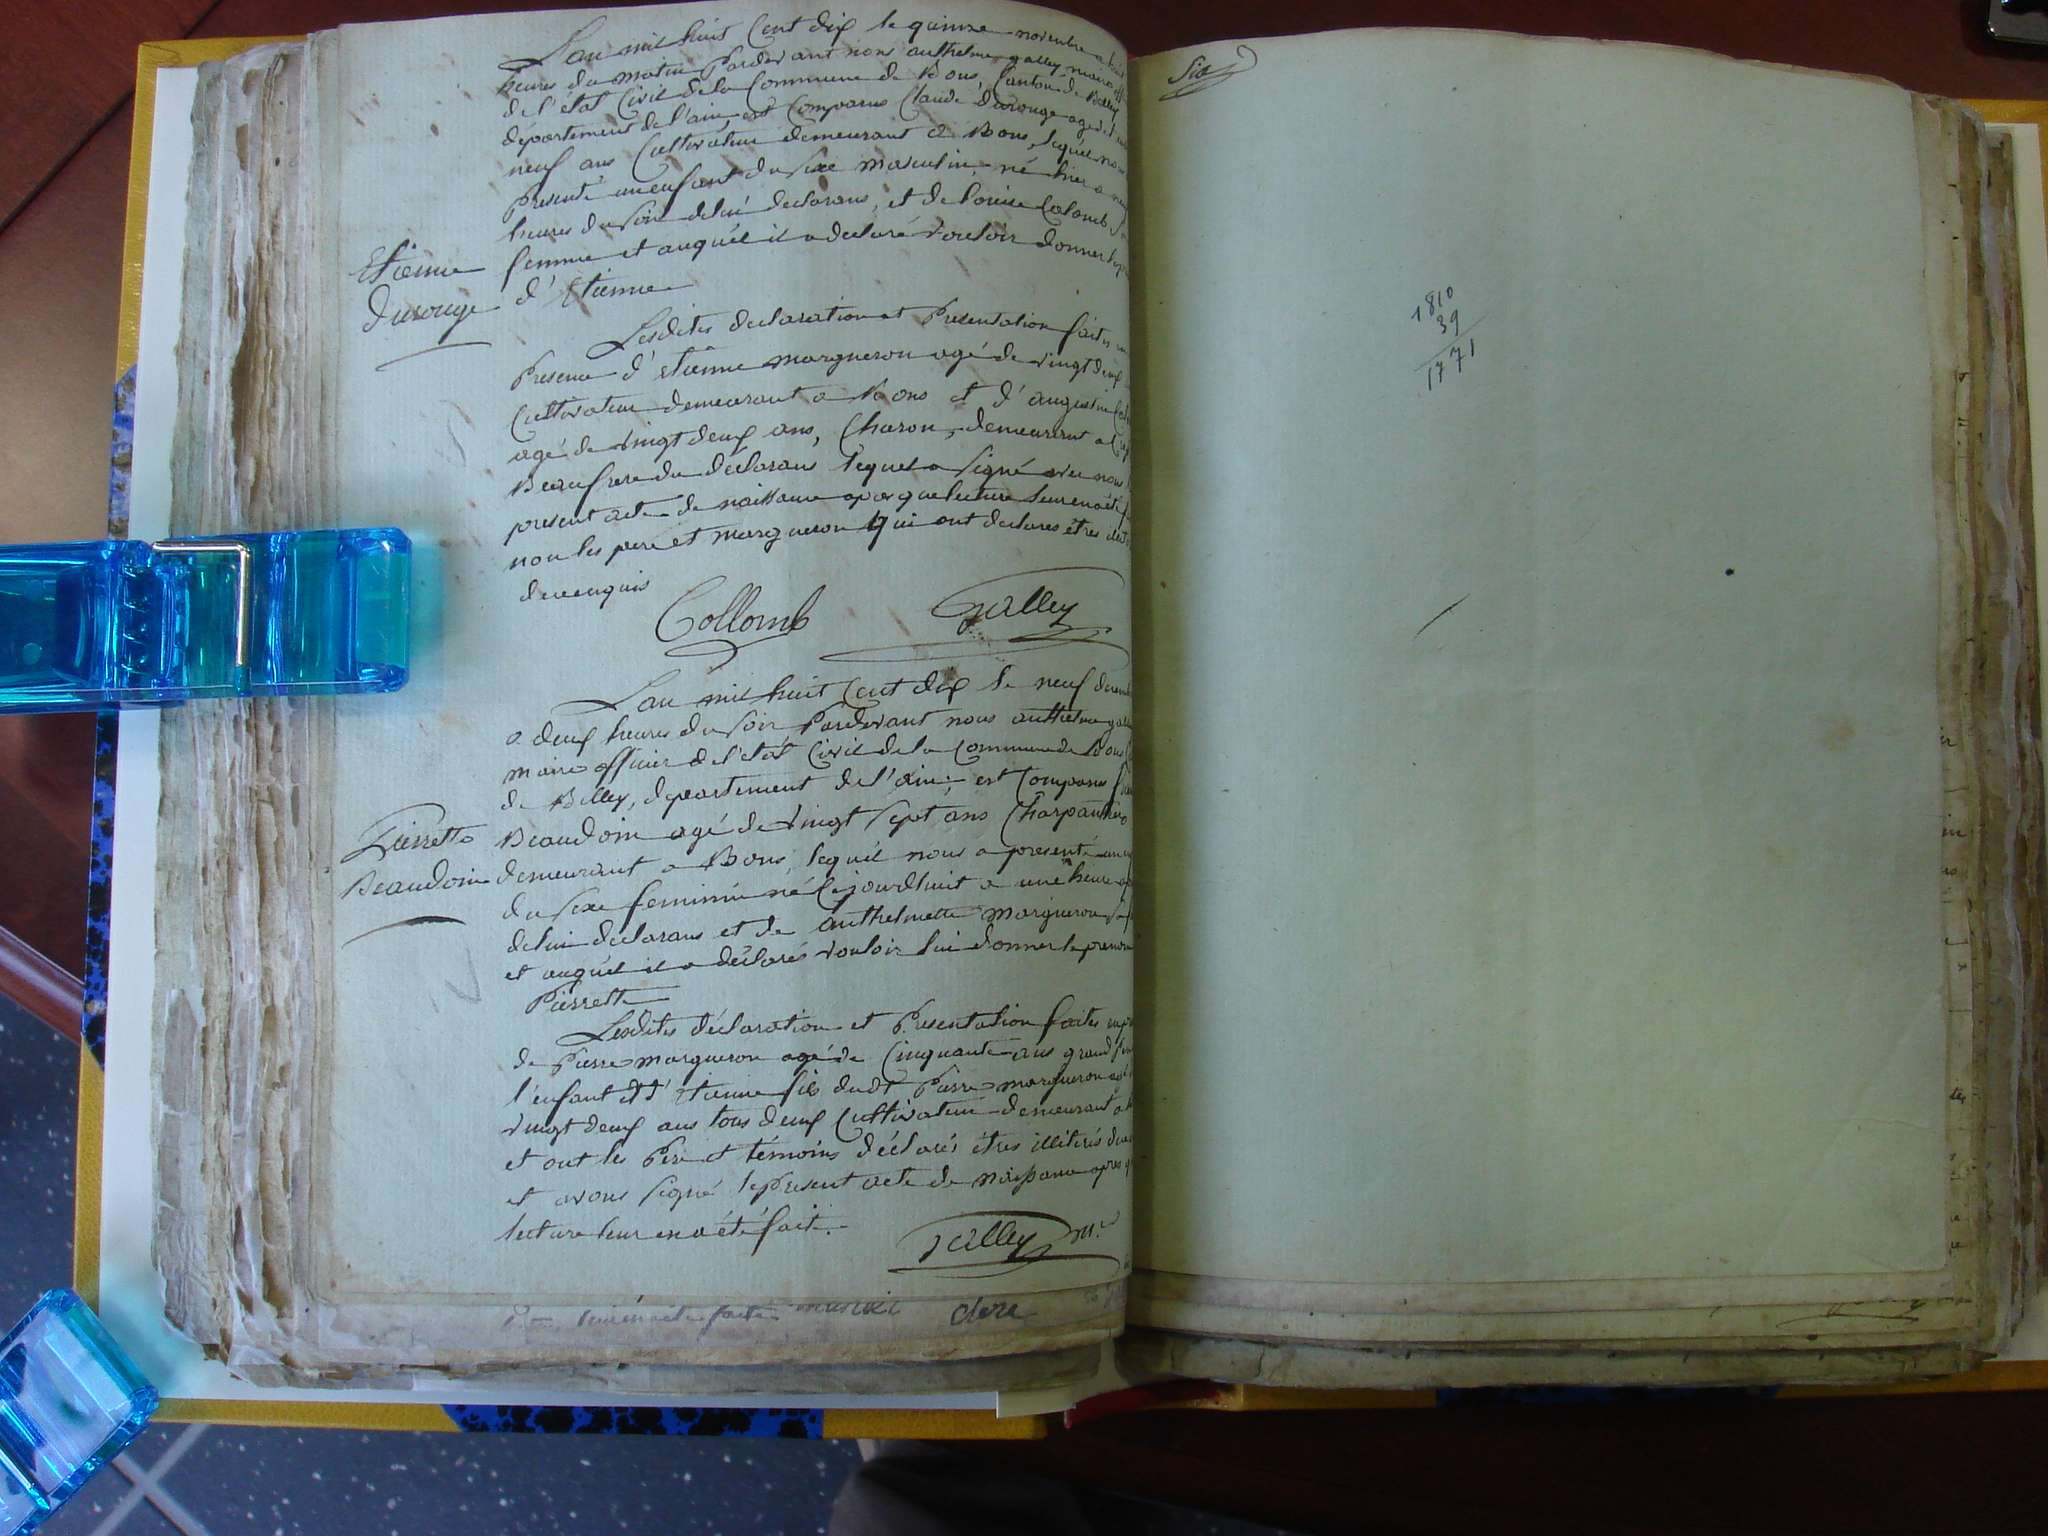 L'an mil huit Cent dix le quinze novembre a huit
heures du matin Pardevant nous anthelme galley maire
de l'état Civil de la Commune de Bons, Canton de Belley
département de l'ain, est Comparus Claude durouge agé de
neuf ans Cultivateur demeurant a Bons, lequel nous
Presenté un enfant du sexe masculin, né hier a neuf
heures du soir de lui declarans, et de Colomb sa
femme et auquel il a declaré Vouloir donner le
d'Etienne
Etienne
durouge
Lesdites declaration et Presentation faites en
Presence d'etienne margueron agé de vingt deux
Cultivateur demeurant a Bons et d'augustin
agé de vingt deux ans, Charon, demeurant a
Beaufrere du déclarans lequel a signé avec nous
present acte de naissance apres que lecture leur en a été
non les pere et margueron qui ont declares êtres
de ce enquis
Collomb Galley
L'an mil huit Cent dix le neuf
a deux heures du soir Pardevant nous anthelme
maire officier de l'état Civil de la Commune de Bons
de Belley, département de l'ain; est Comparus
Beaudoin agé de vingt sept ans Charpantier
demeurant a Bons, lequel nous a presenté un
du sexe feminin né Cejourdhuit a une heure
de lui declarans et de anthelmette margueron sa
et auquel il a déclarés vouloir lui donner le prenom
Pierrette
Pierrette
Beaudoin
Lesdites déclaration et Presentation faites en
de Pierre margueron agé de Cinquante ans grand
l'enfant et d'Etienne fils dudt Pierre margueron
vingt deux ans tous deux Cultivateur demeurant a
et ont les Pere et témoins déclarés êtres illiterés
et avons signé le present acte de naissance apres
lecture leur en a été fait.
Galley m.
leur en a été faite
clere
Six
1810
39
1771